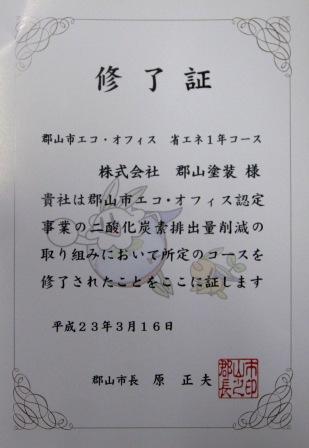 修了証
郡山市エコ・オフィス 省エネ1年コース
株式会社 郡山塗装 様
貴社は郡山市エコ・オフィス認定
事業の二酸化炭素排出量削減の
取り組みにおいて所定のコースを
修了されたことをここに証します
平成23年3月16日
郡山市長 原 正夫
郡山市長之印